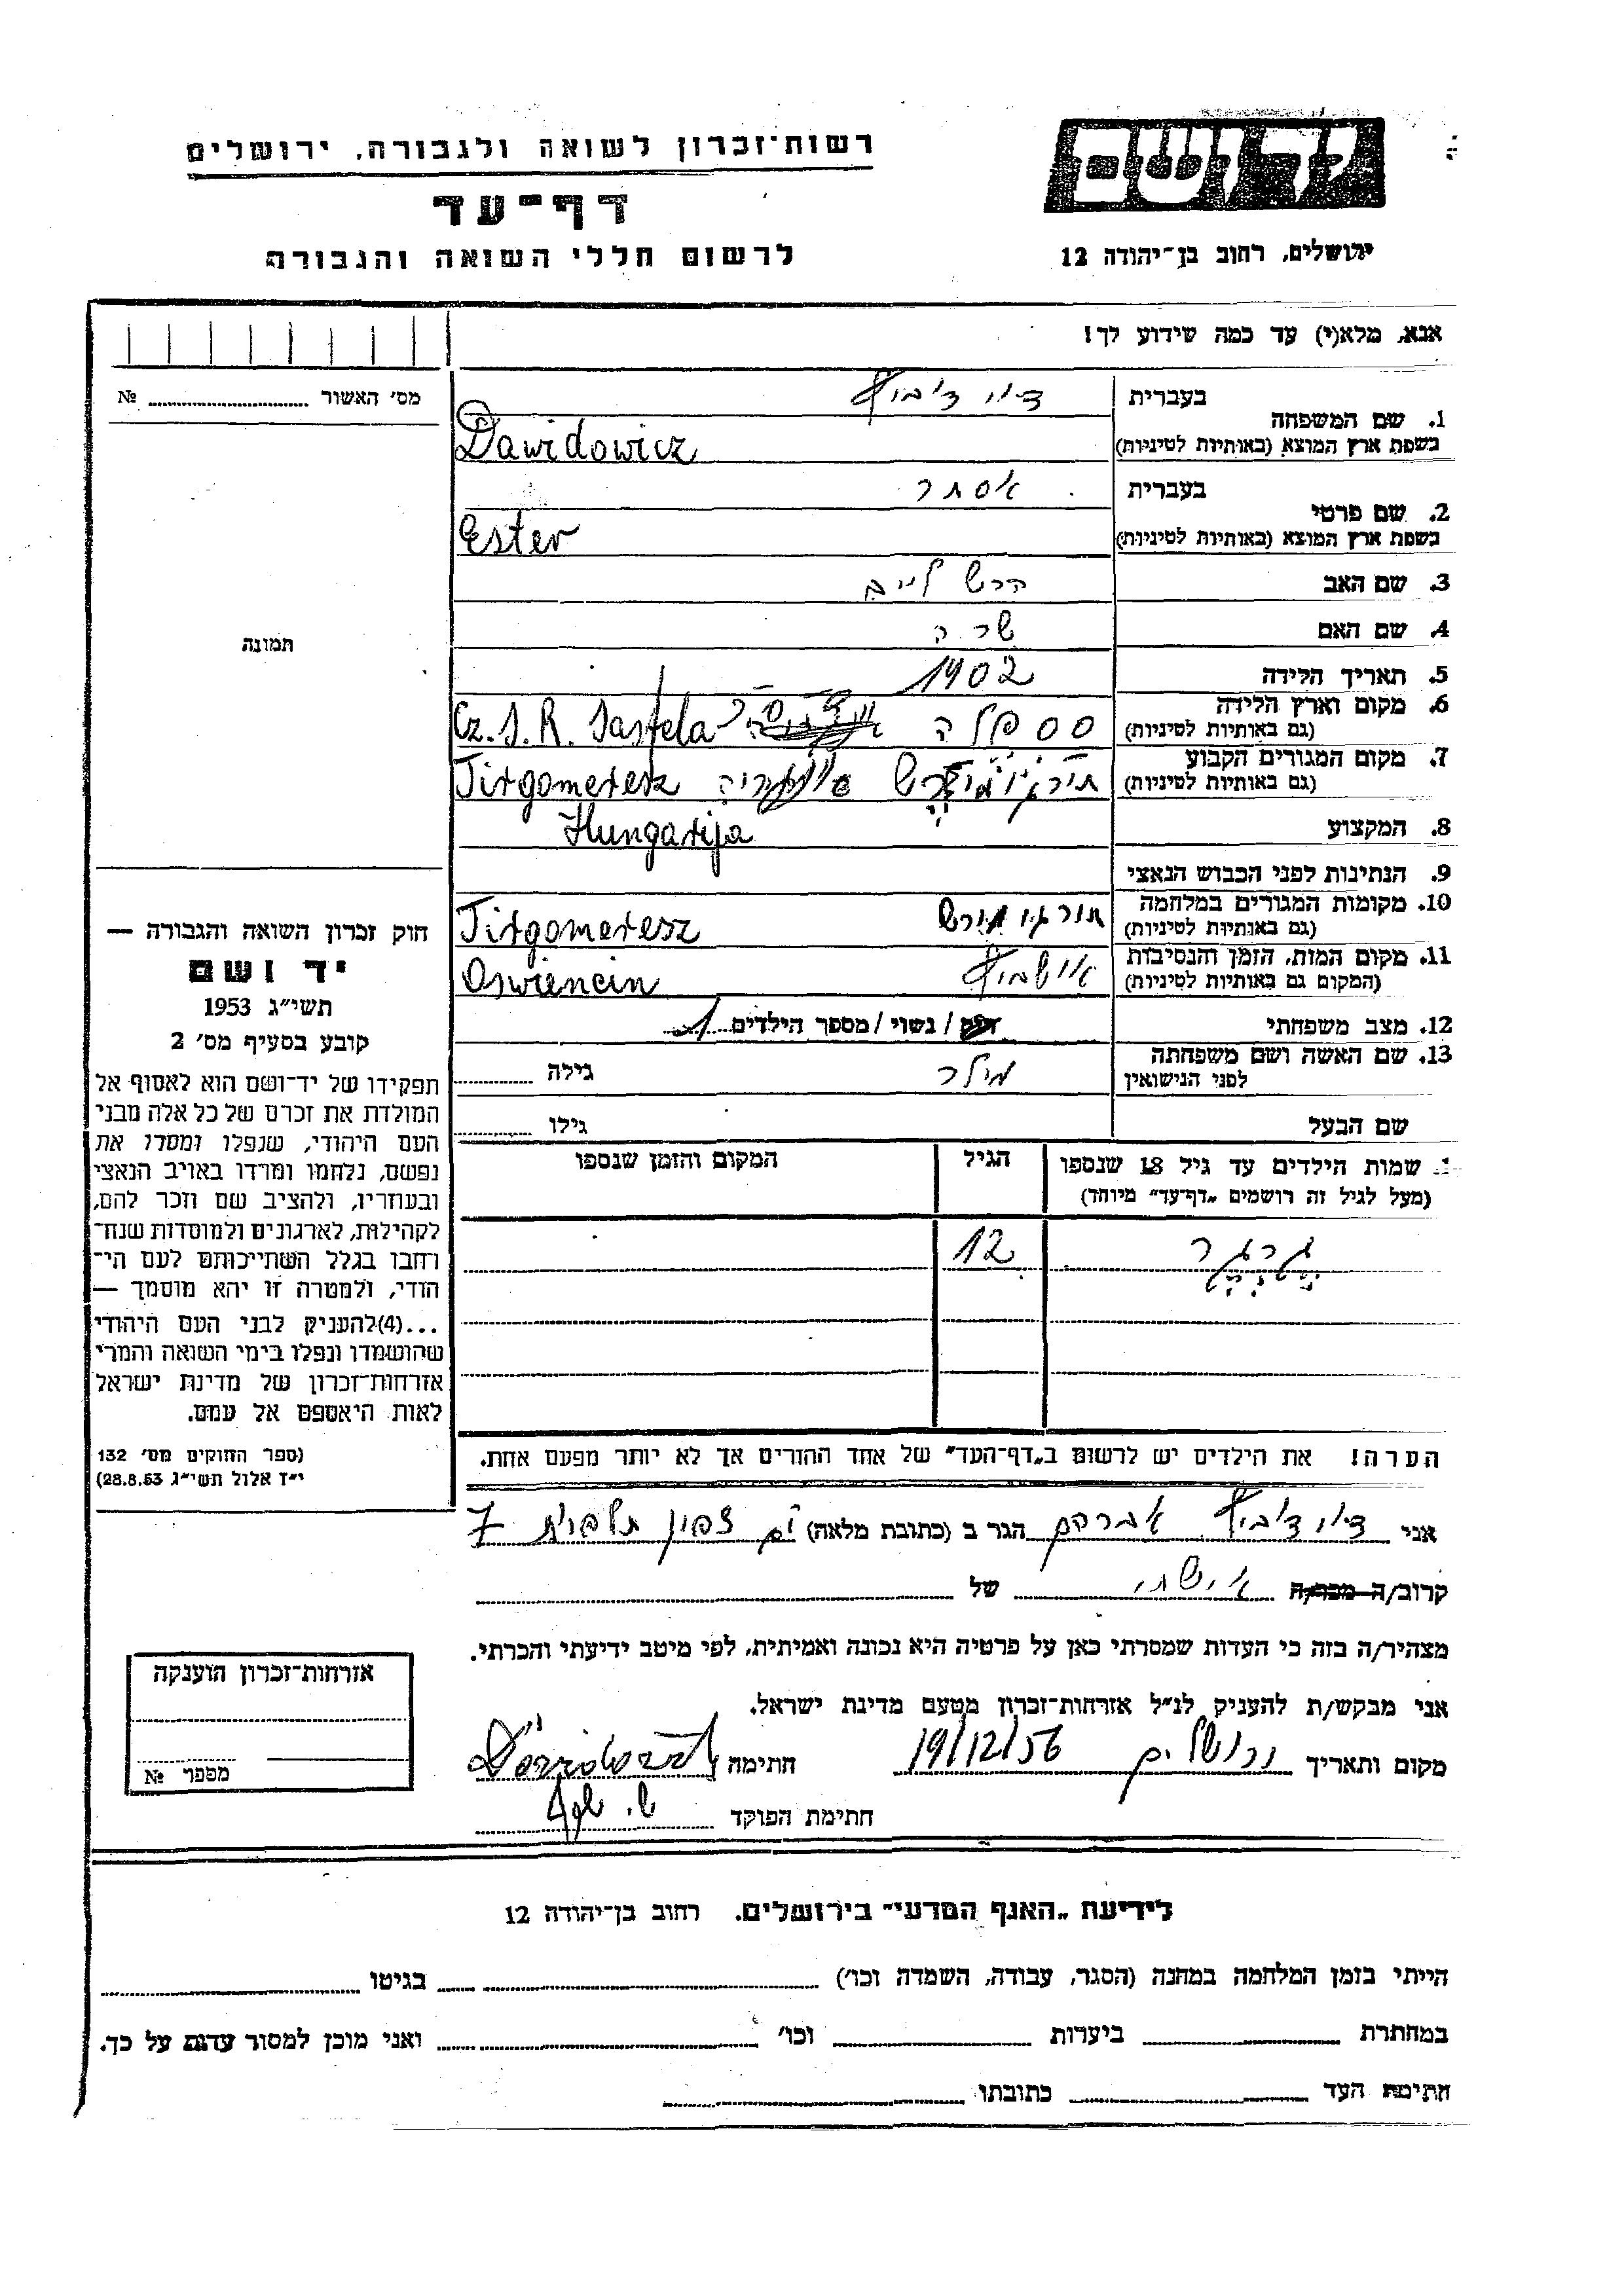 רשות־זכרון לשואה ולגבורה, ירושלים
יד ושם
דף־עד
לרשום חללי השואה והגבורה
ירושלים, רחוב בן־יהודה 12
אנא, מלא(י) עד כמה שידוע לך!
מס' האשור № 
תמונה
1. שם המשפחה
בעברית
בשפת ארץ המוצא (באותיות לטיניות) Dawidowicz
2. שם פרטי
בעברית אסתר
בשפת ארץ המוצא (באותיות לטיניות) Ester
3. שם האב הרש לייב
4. שם האם שרה
5. תאריך הלידה 1902
6. מקום וארץ הלידה Cz. S. R. Sasfela
(גם באותיות לטיניות)
7. מקום המגורים הקבוע Tirgomeresz
(גם באותיות לטיניות)
Hungarija
8. המקצוע
9. הנתינות לפני הכבוש הנאצי
10. מקומות המגורים במלחמה Tirgomeresz
(גם באותיות לטיניות)
11. מקום המות, הזמן והנסיבות Oswiencin
(המקום גם באותיות לטיניות)
12. מצב משפחתי / נשוי / מספר הילדים 1
13. שם האשה ושם משפחתה לפני הנישואין מולר גילה
שם הבעל גילו
שמות הילדים עד גיל 18 שנספו הגיל המקום והזמן שנספו
(מעל לגיל זה רושמים „דף־עד" מיוחד)
12
הערה! את הילדים יש לרשום ב„דף־העד" של אחד ההורים אך לא יותר מפעם אחת.
חוק זכרון השואה והגבורה —
יד ושם
תשי"ג 1953
קובע בסעיף מס' 2
תפקידו של יד־ושם הוא לאסוף אל
המולדת את זכרם של כל אלה מבני
העם היהודי, שנפלו ומסרו את
נפשם, נלחמו ומרדו באויב הנאצי
ובעוזריו, ולהציב שם וזכר להם,
לקהילות, לארגונים ולמוסדות שנח־
רבו בגלל השתייכותם לעם הי־
הודי, ולמטרה זו יהא מוסמך —
...(4)להעניק לבני העם היהודי
שהושמדו ונפלו בימי השואה והמרי
אזרחות־זכרון של מדינת ישראל
לאות היאספם אל עמם.
(ספר החוקים מס' 132
י"ז אלול תשי"ג 28.8.53)
אני אברהם הגר ב (כתובת מלאה) צפון תלפיות 7
קרוב/ה מכר/ה אישתי של
מצהיר/ה בזה כי העדות שמסרתי כאן על פרטיה היא נכונה ואמיתית, לפי מיטב ידיעתי והכרתי.
אני מבקש/ת להעניק לנ"ל אזרחות־זכרון מטעם מדינת ישראל.
מקום ותאריך ירושלים 19/12/56 חתימה
חתימת הפוקד
אזרחות־זכרון הוענקה
מספר №
לידיעת „האגף המדעי" בירושלים. רחוב בן־יהודה 12
הייתי בזמן המלחמה במחנה (הסגר, עבודה, השמדה וכו') בגיטו
במחתרת ביערות וכו' ואני מוכן למסור עדות על כך.
חתימת העד כתובתו